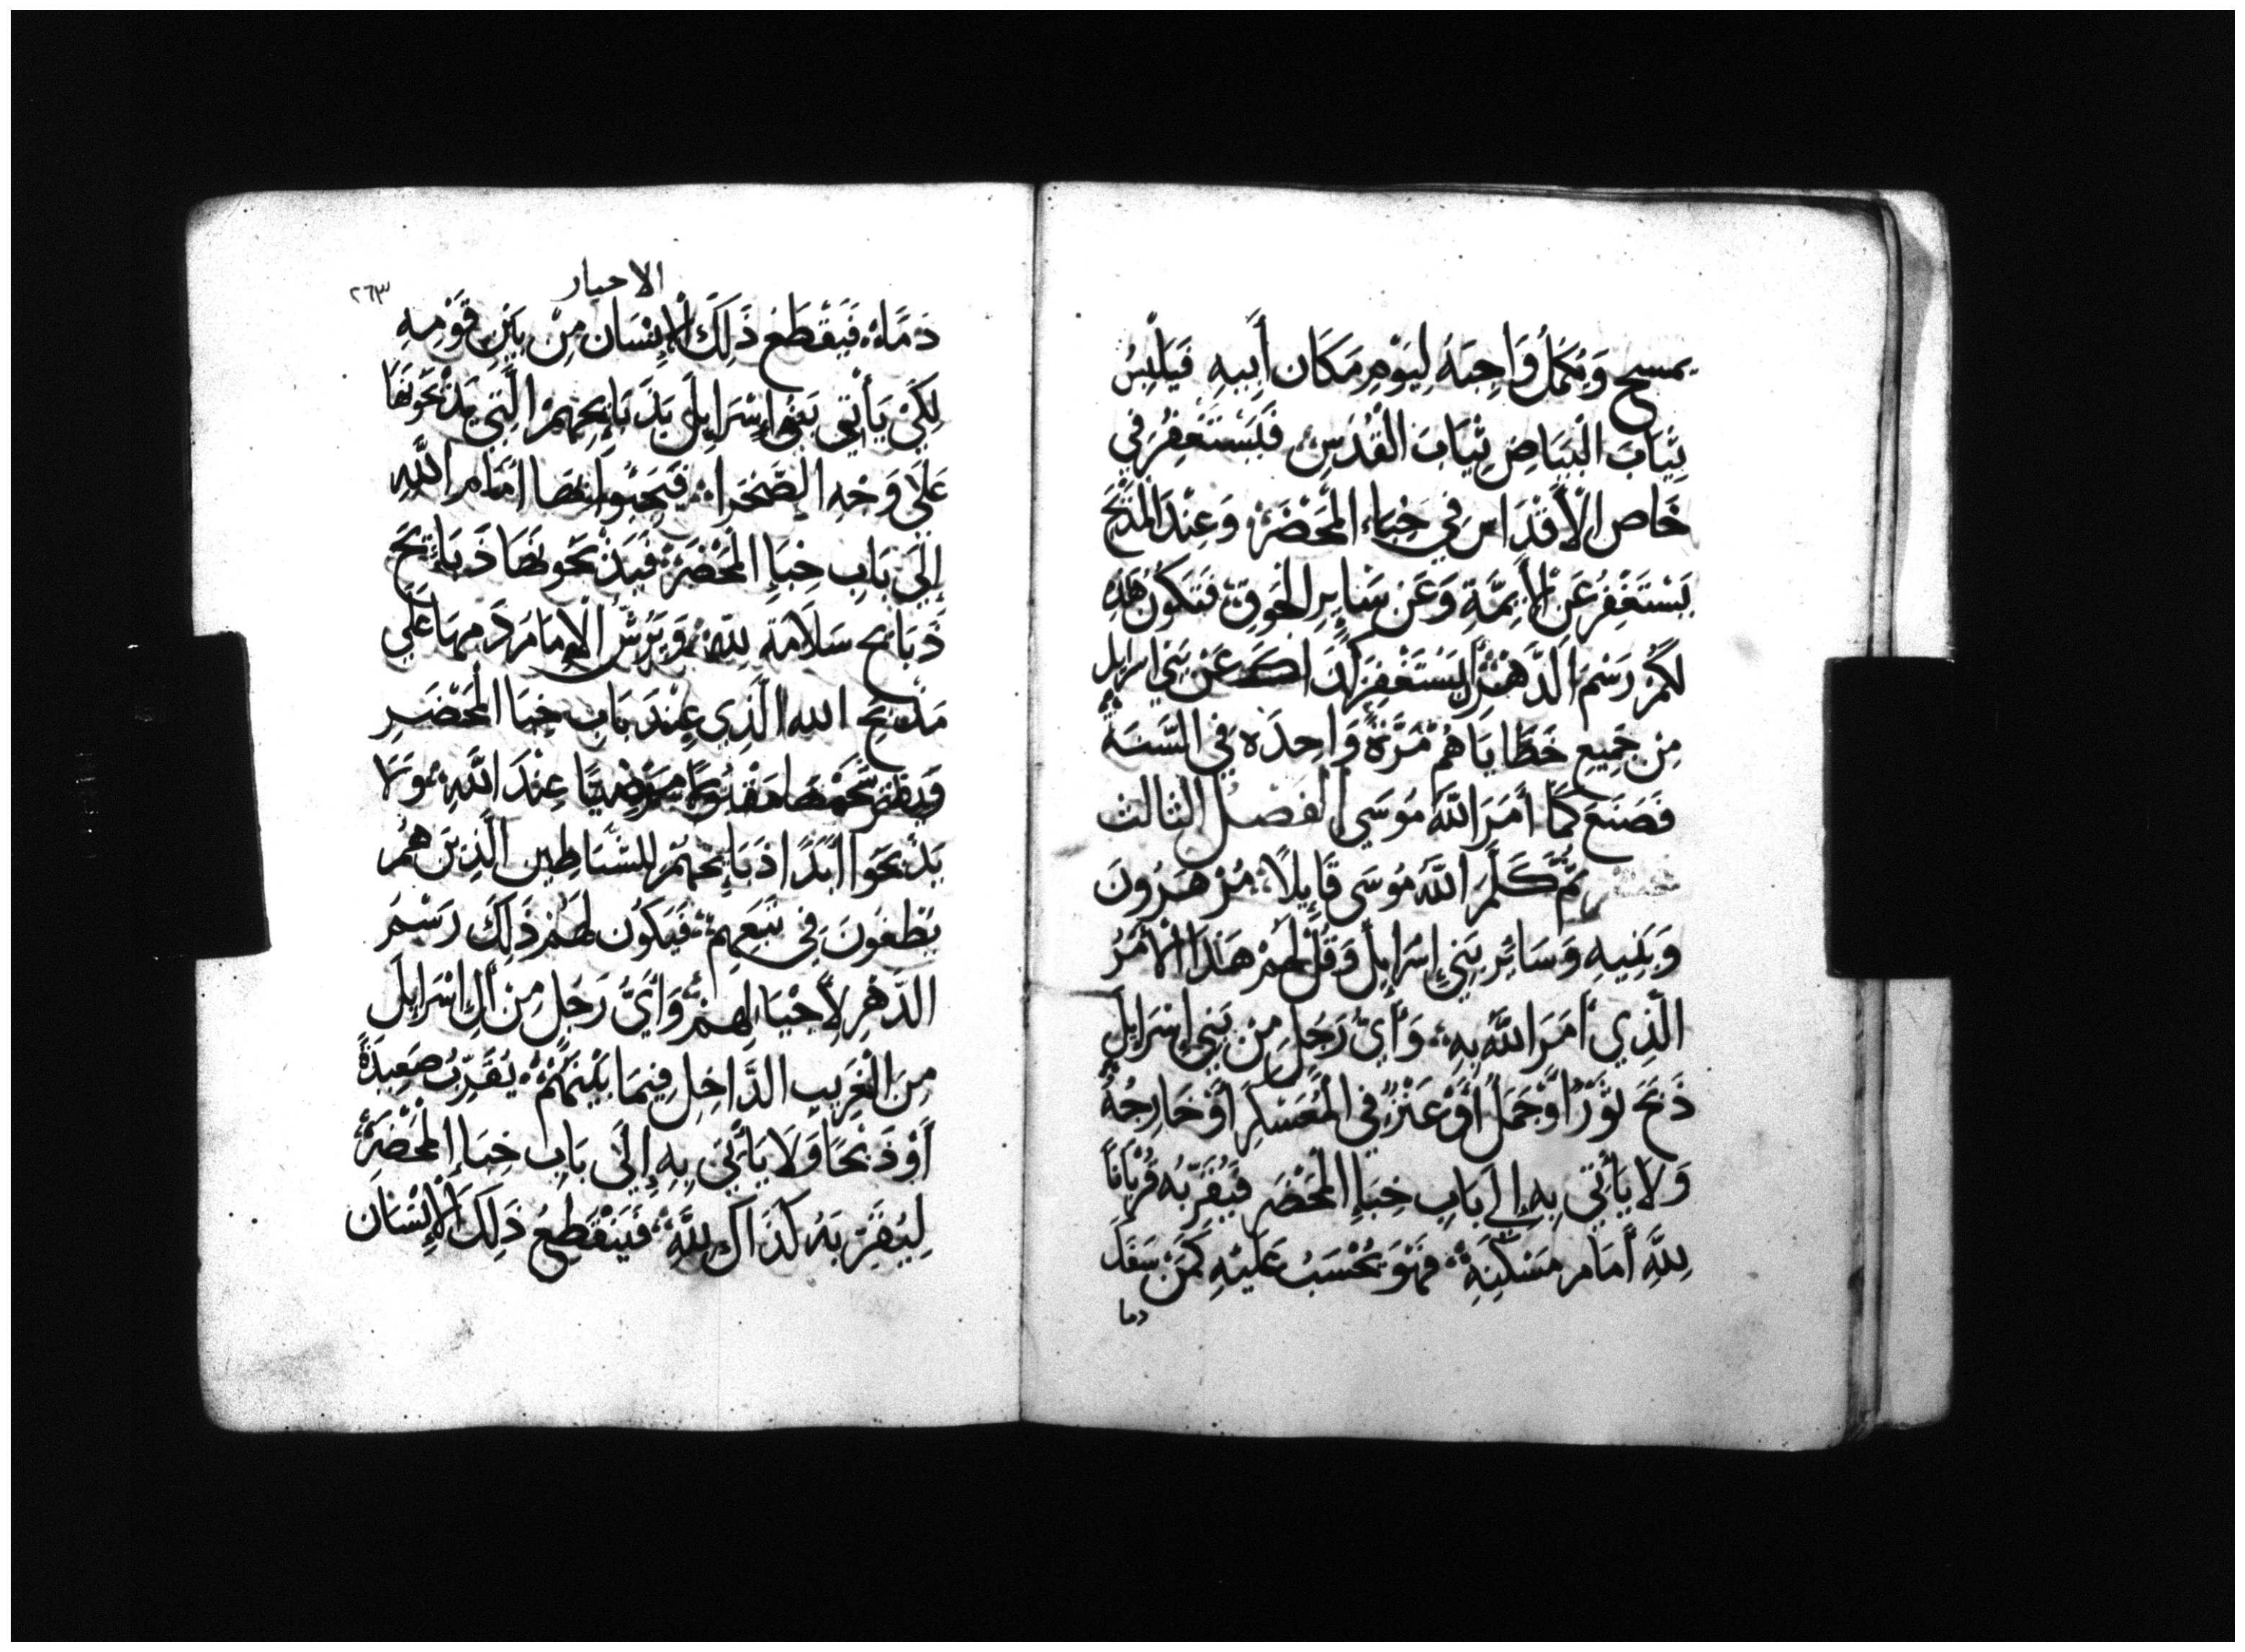 يمسح وَيُكَمِّلُ وَاجِبَهُ لِيَوْمِ مَكَان أَبِيهِ فَيَلْبِسُ
ثِيَابَ الْبَيَاضِ ثِيَابَ الْقُدْسِ فَيَسْتَغْفِرُ فِي
خَاص الْأَقْدَاس فِي خِبَاء الْمَحْضَرْ وَعِنْدَ الْمَذْبَحْ
يَسْتَغْفِرُ عَنْ الْأَيِمَّةِ وَعَنْ سَايِرِ الْجَوقِ فَتَكُونُ هَذِهِ
لَكُمْ رَسْمَ الدَّهْرْ لِيَسْتَغْفِرَ كَذَاكَ عَنْ بَنِي اسْرَايِل
مِن جَمِيعِ خَطَايَاهُمْ مَرَّةً وَاحِدَه فِي السَّنَه
فَصَنَعَ كَمَا أَمَرَ اللّهُ مُوسَي الفصل الثالث
ثُمَّ كَلَّمَ اللّهُ مُوسَى قَايِلاً مُرْ هَرُونَ
وَبَنِيهِ وَسَائِرِ بَنِي إِسْرَايِلَ وَقُلْ لَهُمْ هَذَا الْأَمْرُ
الَّذِي أَمَرَ اللّهُ بِهِ وَأَيُّ رَجُلٍ مِنْ بَنِي إِسْرَايِلَ
ذَبَحَ ثَوْرًا أَوْ حَمَل أَوْ عَنْزًا فِي الْمُعَسْكَرِ أَوْ خَارِجُهُ
وَلَا يَأْتِي بِهِ إِلَي بَابِ خِبَاإِ الْمَحْضَرِ فَيُقَرِّبُه قُرْبَانًا
لِلّهِ أَمَامِ مَسْكِنِهِ فَهُوَ يُحْسَبُ عَلَيْهِ كَمَنْ سَفَكَ
دما
الاحبار
٢٦٣
دَمًا فَيَقْطَعْ ذَلِكَ الْإِنْسَان مِنْ بَيْنِ قَوْمِهِ
لِكَيْ يَأْتِي بَنُوا إِسْرَايِلَ بِذَبَايِحِهِمْ الَّتِي يَذْبَحُونَهَا
عَلَى وَجْهِ الصَّحْرَا فَيَجِيُوا بِهَا أَمَام اللّهِ
إِلَى بَابِ خِبَاإِ الْمَحْضَرْ فَيَذْبَحُونَهَا ذَبَائِحَ
ذَبَائِح سَلَامَةِ لِلّهِ وَيَرُشُّ الْإِمَامُ دَمهَا عَلَي
مَذْبَحِ الله الَّذِي عِنْدَ بَابِ خِبَا الْمَحْضَرِ
شَحْمَهَا مَقْبُولاً مَرْضِيًا عِنْدَ اللّهِ وَلَا
يَذْبَحُوا أَبَدًا ذَبَايِحَهُمْ لِلشَّيَاطِين الَّذِينَ هُمْ
فِي تَبَعِهِمْ فَيَكُون لَهُمْ ذَلِكَ رَسْمَ
الدَّهْرِ لِأَجْيَالِهِمْ وَأَيُّ رَجُلٍ مِنْ أَلِ إِسْرَايِلَ
مِنَ الْغَرِيبِ الدَّاخِلِ فِيمَا بَيْنَكُمْ يُقَرِّبُ صَعِيدَةً
أَوْ ذَبْحًا وَلَا يَأْتِي بِهِ إِلَى بَابِ خِبَاإِ الْمَحْضَرْ
لِيُقَرِّبَهُ كَذَاكَ لِلّهِ فَيَنْقَطِعُ ذَلِكَ الْإِنْسَان